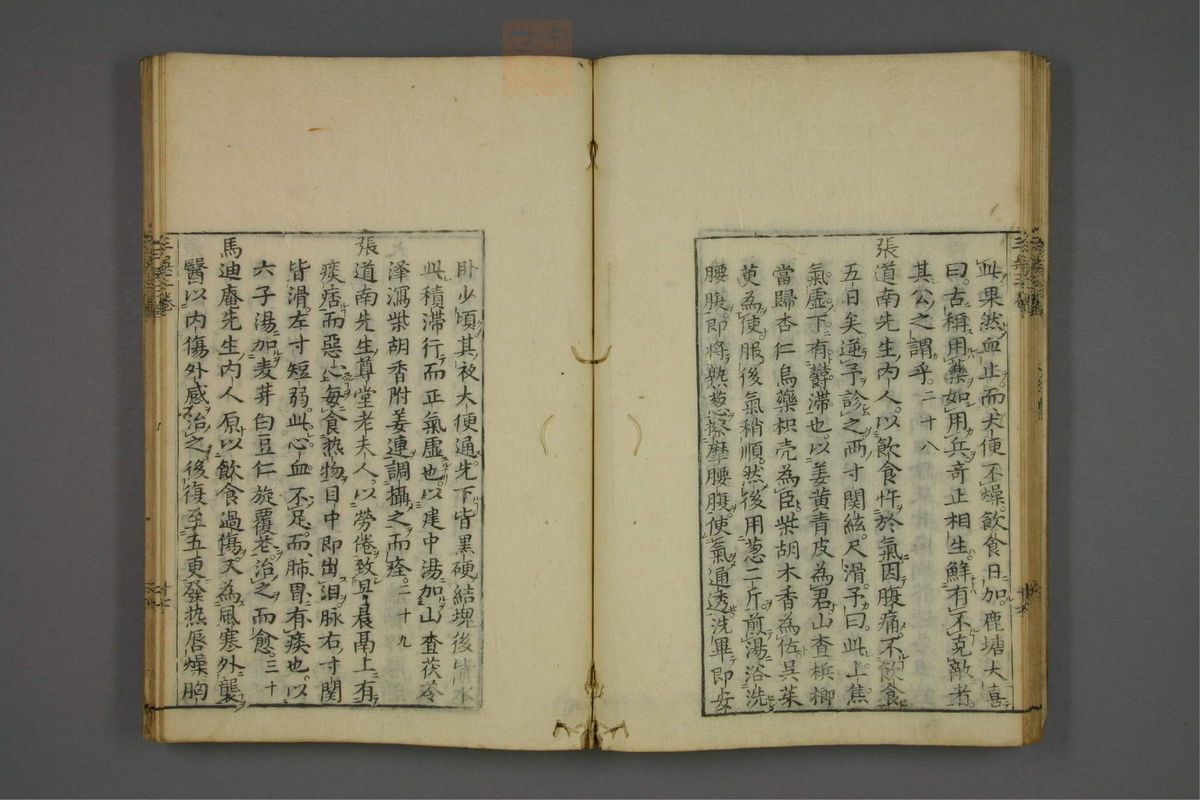 此果然血止而大便不燥飲食日加鹿塘大喜
曰古稱用藥如用兵奇正相生鮮有不克敵者
其公之謂乎二十八
張道南先生内人以飲食忤於氣因腹痛不飲食
五日矣逆予診之两寸関絃尺滑予曰此上焦
氣虚下有欝滞也以姜黄青皮為君山查梹榔
當歸杏仁烏藥枳壳為臣柴胡木香為佐呉茱
萸為使服後氣稍順然後用葱二斤煎湯浴洗
腰腹即將熱葱擦摩腰腹使氣通透洗畢即安
卧少頃其夜大便通先下皆黒硬結塊後皆水
此積滞行而正氣虚也以建中湯加山査茯苓
泽瀉柴胡香附姜連調攝之而痊二十九
張道南先生尊堂老夫人以勞倦致耳暈鬲上有
痰痞而惡心每食热物目中即出泪脉右寸関
皆滑左寸短弱此心血不足而肺胃有痰也以
六子湯加麦芽白豆仁旋覆花治之而愈三十
馬迪庵先生内人原以飲食過傷又為風寒外襲
醫以内傷外感治之後復至五更發热唇燥胸